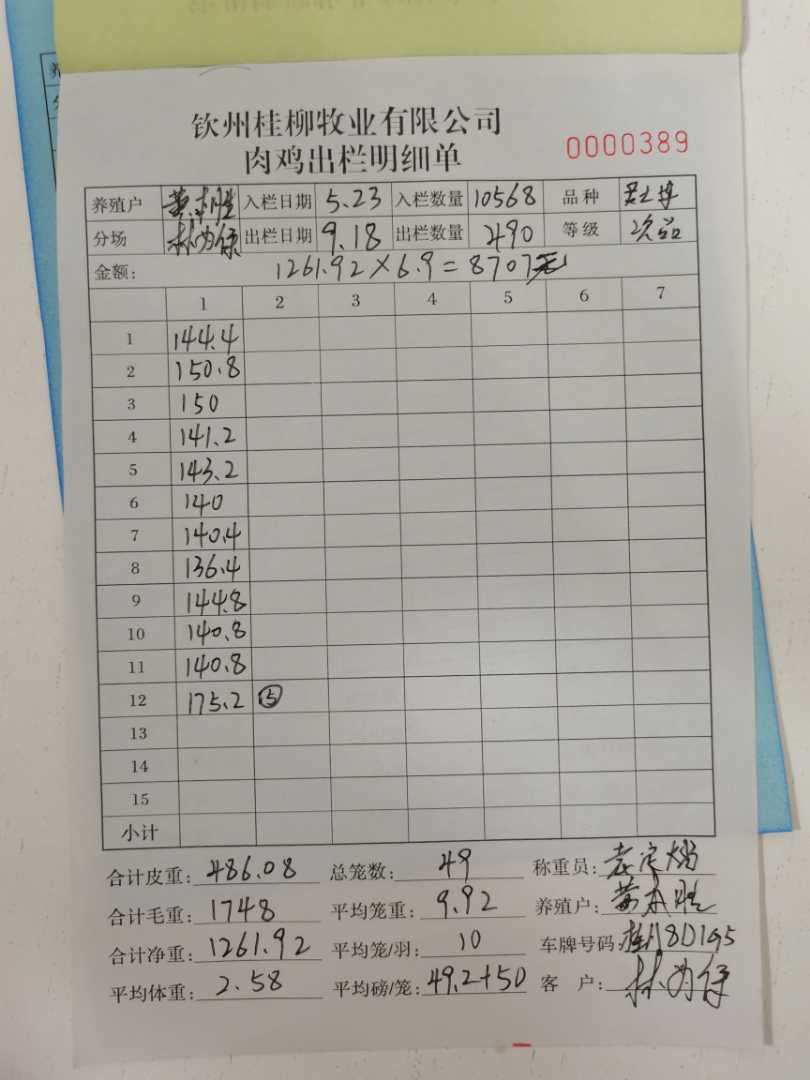 钦州桂柳牧业有限公司
肉鸡出栏明细单
0000389
养殖户 黄本胜 入栏日期 5.23 入栏数量 10568 品种
分场 林为保 出栏日期 9.18 出栏数量 490 等级 次品
金额: 1261.92×6.9=8707元
1 2 3 4 5 6 7
1 144.4
2 150.8
3 150
4 141.2
5 143.2
6 140
7 140.4
8 136.4
9 144.8
10 140.8
11 140.8
12 175.2 ⑤
13
14
15
小计
合计皮重: 486.08 总笼数: 49 称重员:
合计毛重: 1748 平均笼重: 9.92 养殖户: 黄本胜
合计净重: 1261.92 平均笼/羽: 10 车牌号码:
平均体重: 2.58 平均磅/笼: 49.2+50 客 户: 林为保